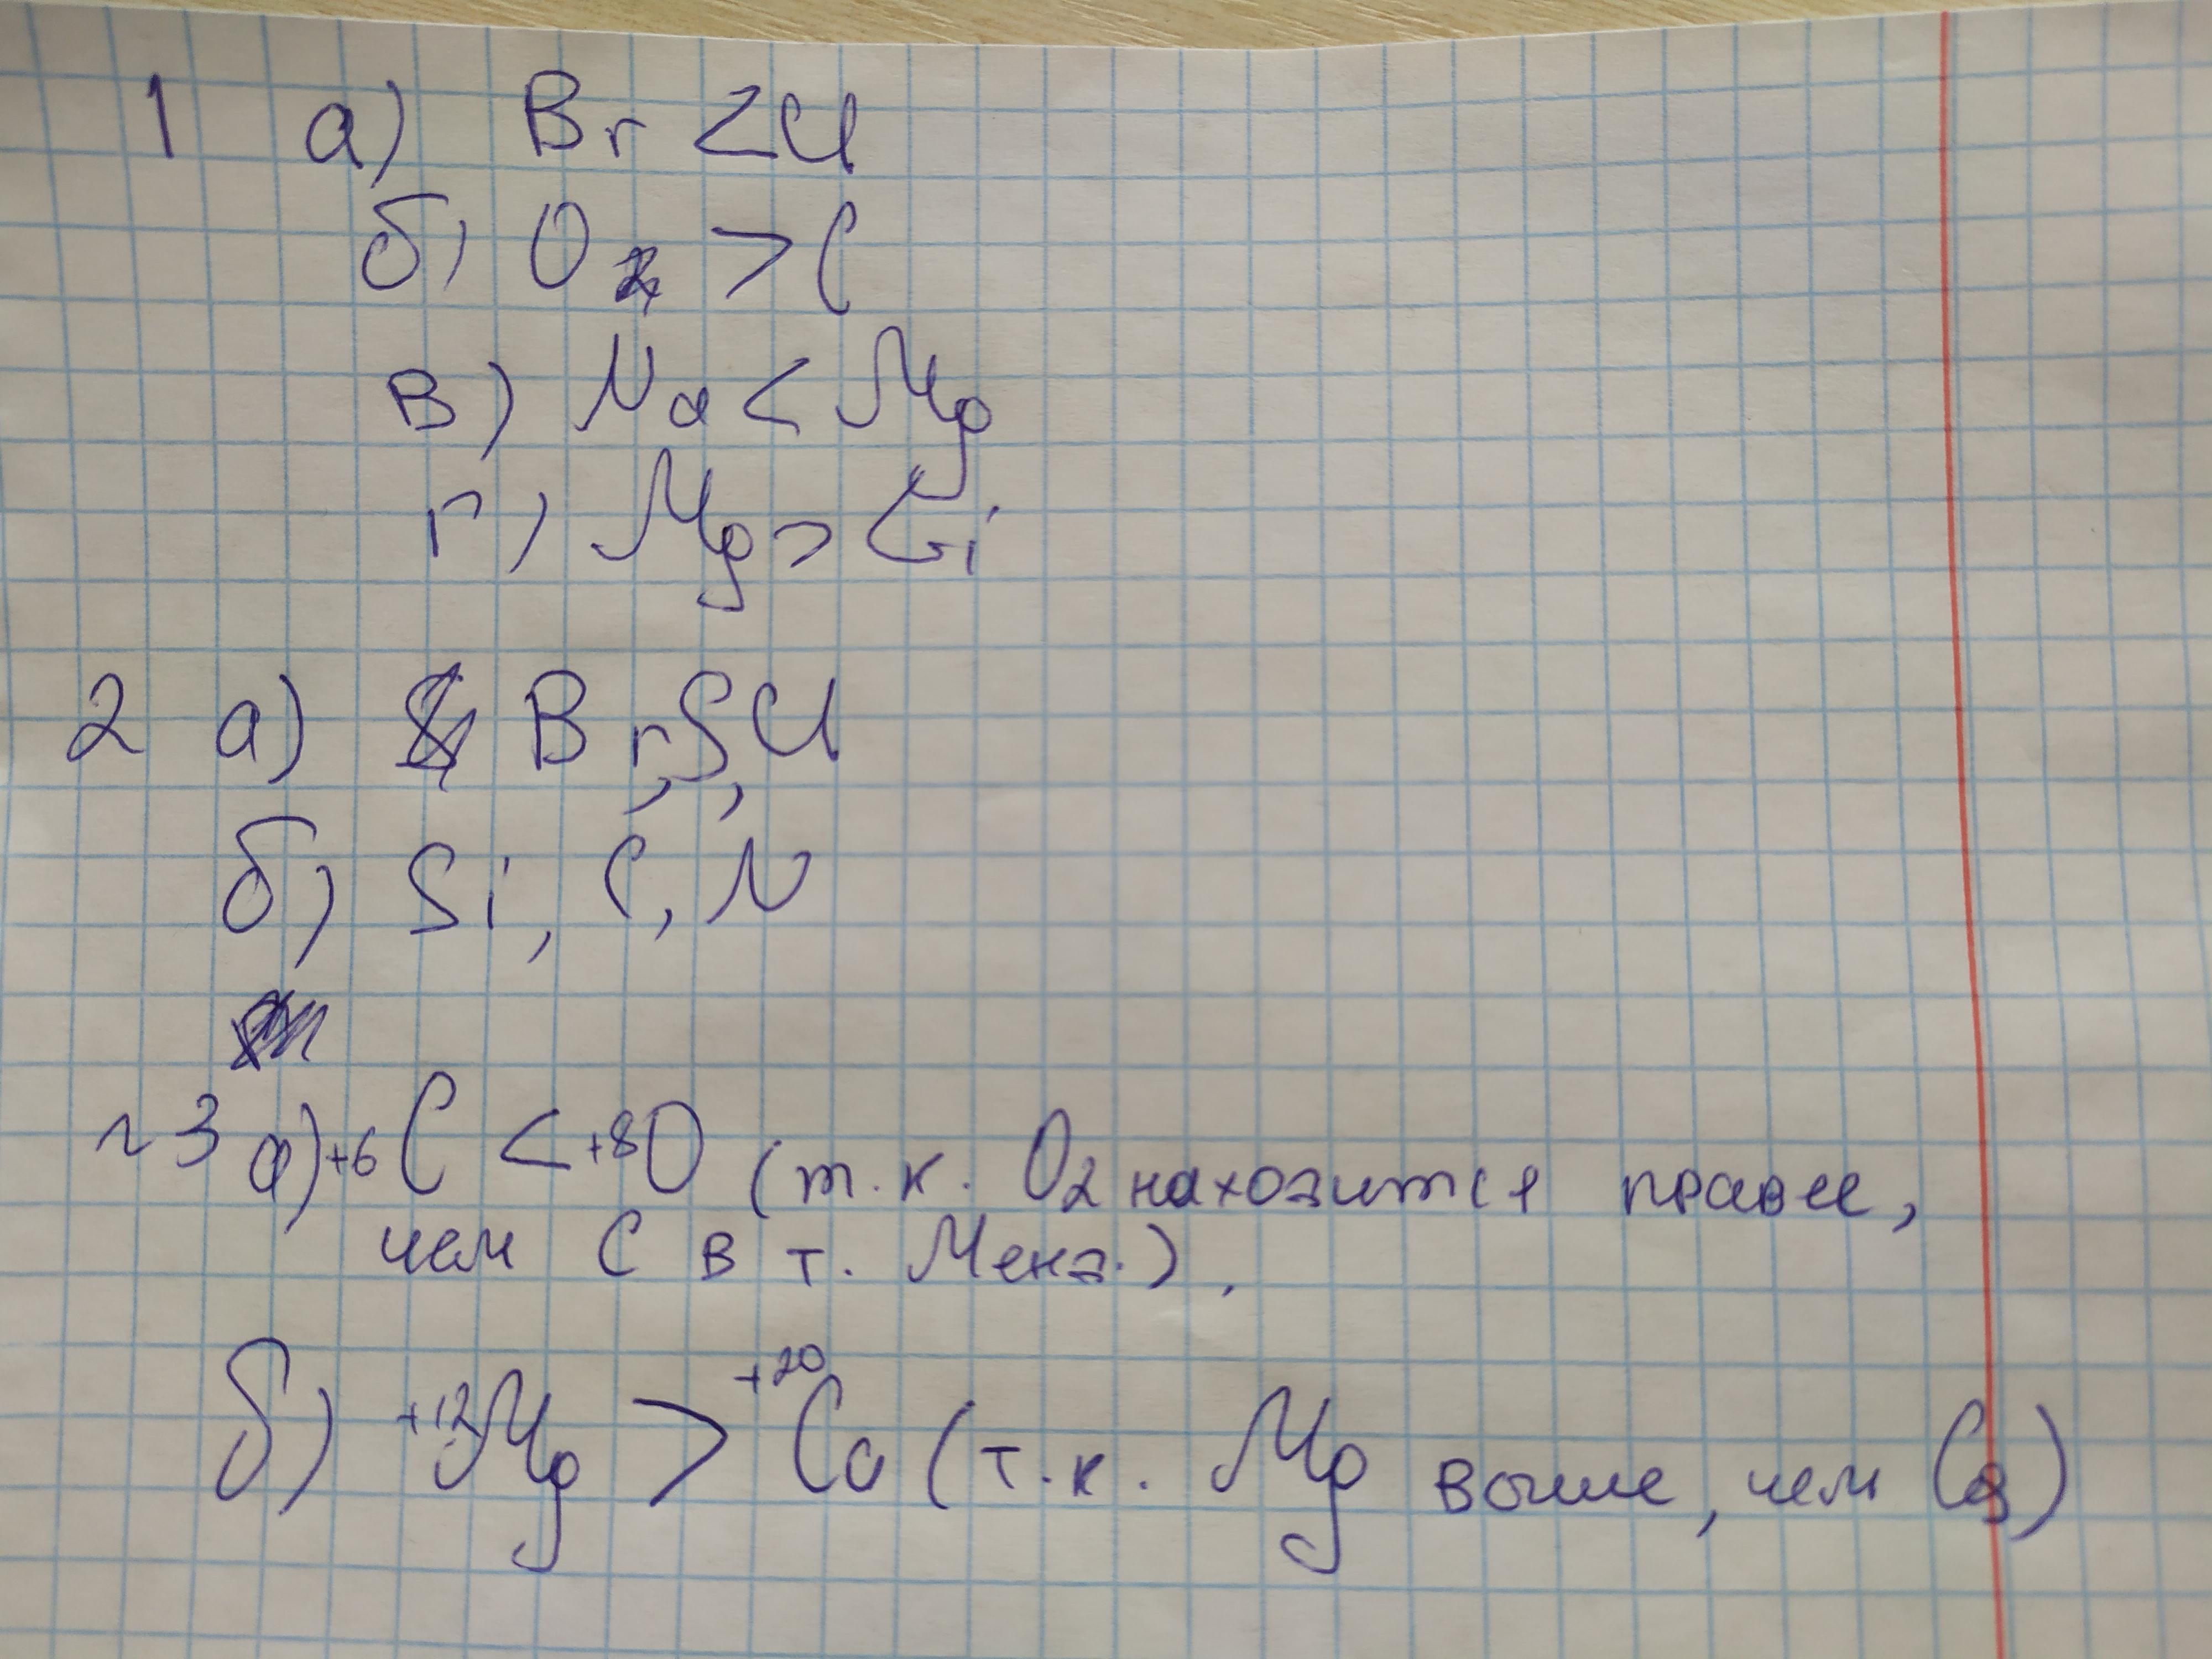 1 а) Br < Cl
б) O > C
в) Na < Mg
г) Mg > Li
2 а) Br, S, Cl
б) Si, C, N
№3 а) +6 C < +8 O (т.к. O2 находится правее,
чем C в т. Менд.).
б) +12 Mg > +20 Ca (т.к. Mg выше, чем Ca)